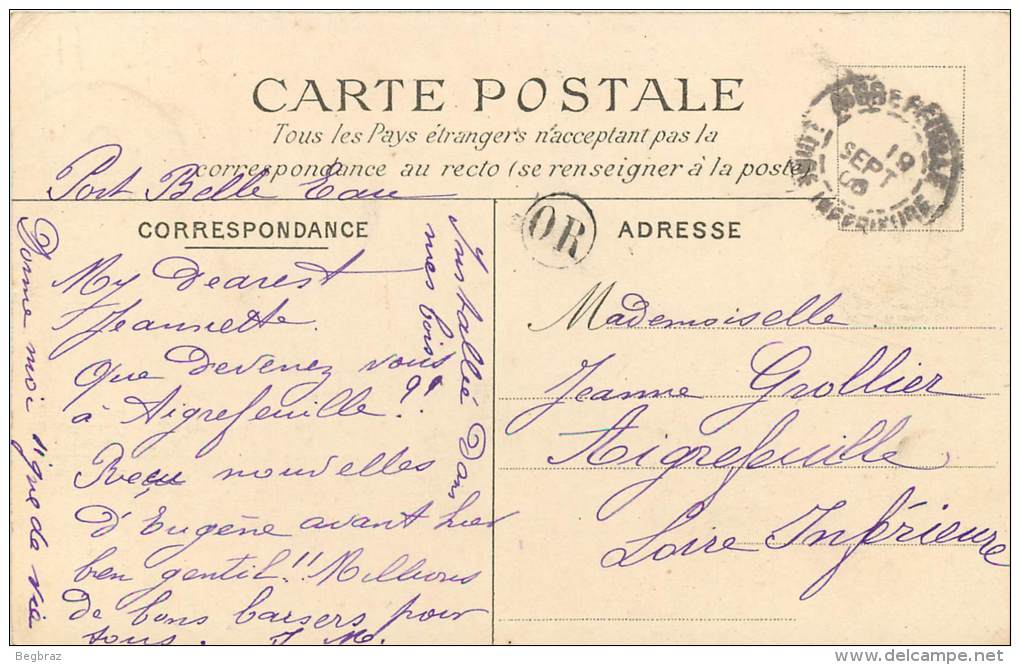 CARTE POSTALE
Tous les Pays étrangers n'acceptent pas la
correspondance au recto (se renseigner à la poste)
Port Belle Eau
CORRESPONDANCE
My Dearest
Jeannette.
que Devenez vous
à Aigrefeuille?!
Reçu nouvelles
d'Eugène avant hier
ben gentil!! Millions
de bons baisers pour
tous. J M.
Installée Dans
mes bois
Donne moi signe de vie
OR
ADRESSE
19
SEPT
INFERIEURE
Mademoiselle
Jeanne Grollier
Aigrefeuille
Loire Inférieure
Begbraz
delcampe.net